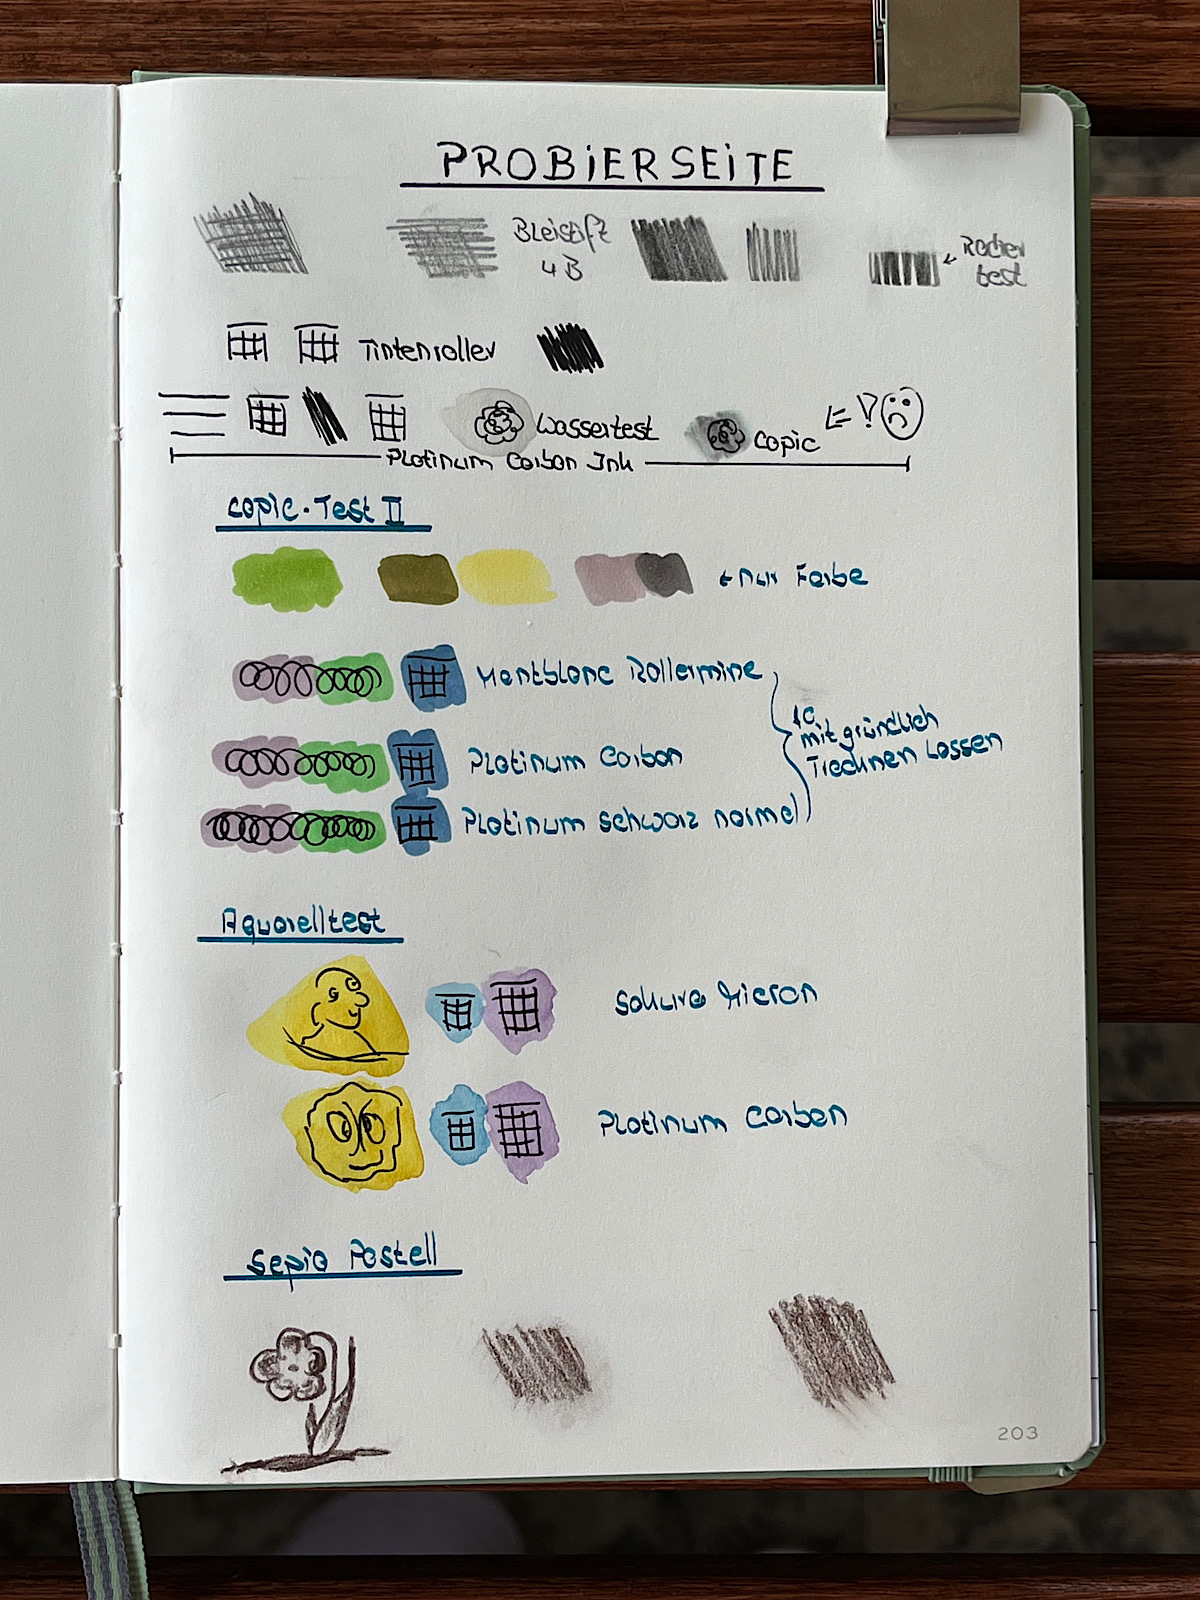 PROBIERSEITE
Bleistift
4B
← Radier
test
Tintenroller
Wassertest
Copic
Platinum Carbon Ink
Copic-Test II
← nur Farbe
Montblanc Rollermine
Platinum Carbon
Platinum schwarz normal
mit gründlich
Trocknen Lassen
Aquarelltest
Sakura Micron
Platinum Carbon
Sepia Pastell
203